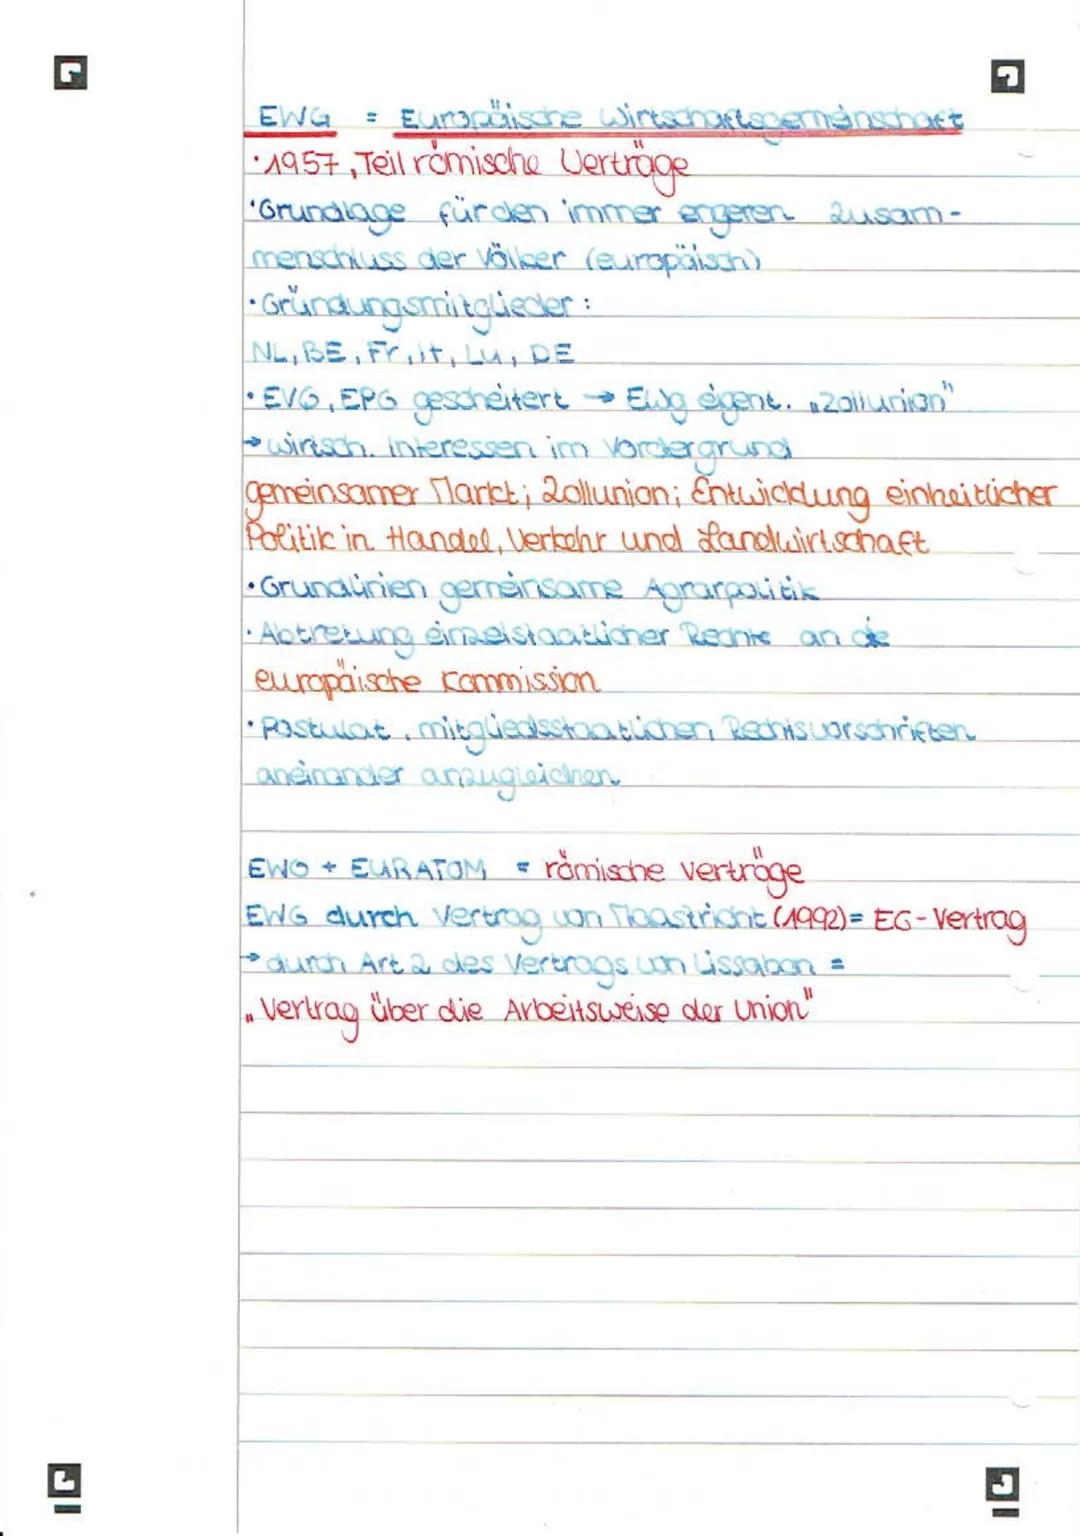 EWG = Europäische Wirtschaftsgemeinschaft
·1957, Teil römische Verträge
·Grundlage für den immer engeren Zusam-
menschluss der Völker (europäisch)
·Gründungsmitglieder:
NL, BE, Fr, It, Lu, DE
·EVG, EPG gescheitert → EWg eigent. „Zollunion"
→ wirtsch. Interessen im Vordergrund
gemeinsamer Markt; Zollunion; Entwicklung einheitlicher
Politik in Handel, Verkehr und Landwirtschaft
·Grundlinien gemeinsame Agrarpolitik
·Abtretung einzelstaatlicher Rechte an die
europäische Kommission
·Postulat, mitgliedsstaatlichen Rechtsvorschriften
aneinander anzugleichen
EWG + EURATOM = römische Verträge
EWG durch Vertrag von Maastricht (1992) = EG-Vertrag
→ durch Art 2 des Vertrags von Lissabon =
„Vertrag über die Arbeitsweise der Union"